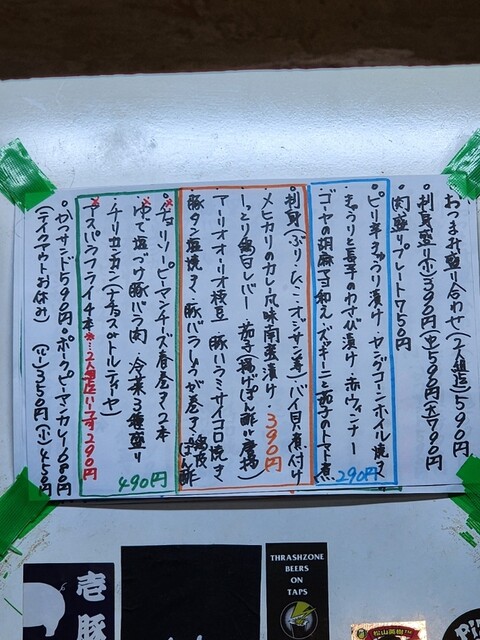 おつまみ盛り合わせ(2人組迄)590円
・刺身盛り(小)390円(中)590円(大)790円
・肉盛りプレート750円
・ピリ辛きゅうり漬け・ヤングコーンホイル焼き
きゅうりと長芋のわさび漬け・赤ウィンナー
ゴーヤの胡麻マヨ和え・ズッキーニと茄子のトマト煮
290円
・刺身(ぶり・オシサン等)バイ貝煮付け
メヒカリのカレー風味南蛮漬け
390円
しっとり鶏白レバー・茄子(揚げぽん酢or唐揚)
アーリオオーリオ枝豆 豚ハラミサイコロ焼き
豚タン塩焼き・豚バラしょうが巻き・鶏皮ぽん酢
チョリソーピーマンチーズ春巻き2本
ゆで塩づけ豚バラ肉・冷菜3種盛り
チリコンカン(ナチョスorトルティーヤ)
アスパラフライ4本 ※2人組迄ハーフすぐ290円
490円
・かつサンド590円・ポークピーマンカレー680円
(テイクアウトお休み) (ル)550円(小)450円
壱豚
THRASHZONE
BEERS
ON
TAPS